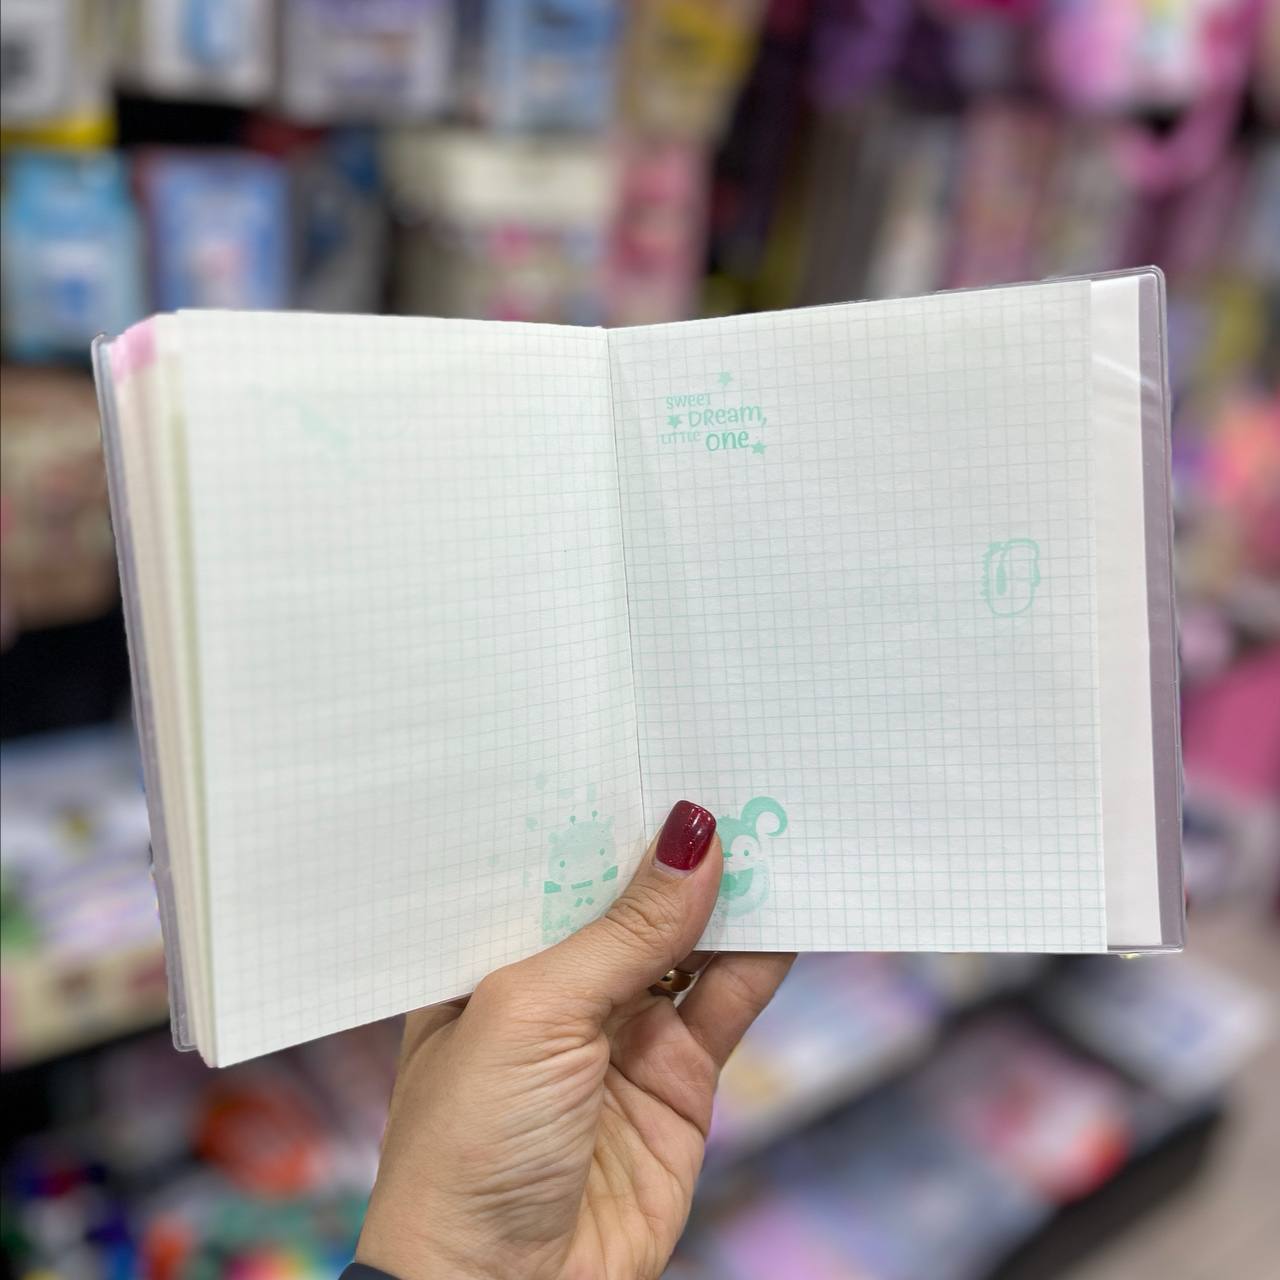 SWEET
DREAM,
LITTLE one